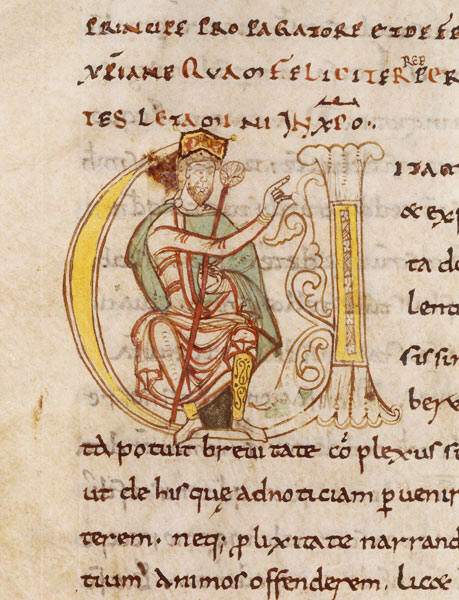 PRINCIPE PROPAGATORE ET DE FE
XPIANE QUAM FELICITER PER
TES LETAMINI IN XPO.
ITAM
& exp
ta do
lent
sissim
bere
ta potuit brevitate cō plexus s
ut de his que ad noticiam p̄ venir
terem. neq; p̄lixitate narrand
tium animos offenderem, lice